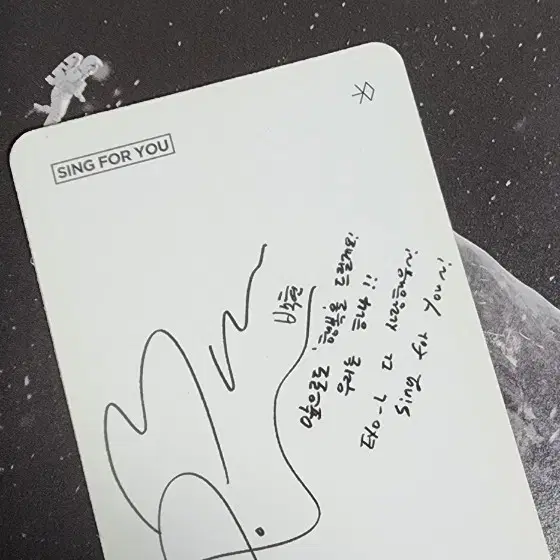 SING FOR YOU
백현
앞으로도 행복을 드릴게요!
우리는 하나!!
EXO-L 다 사랑해유~!
Sing for You~!